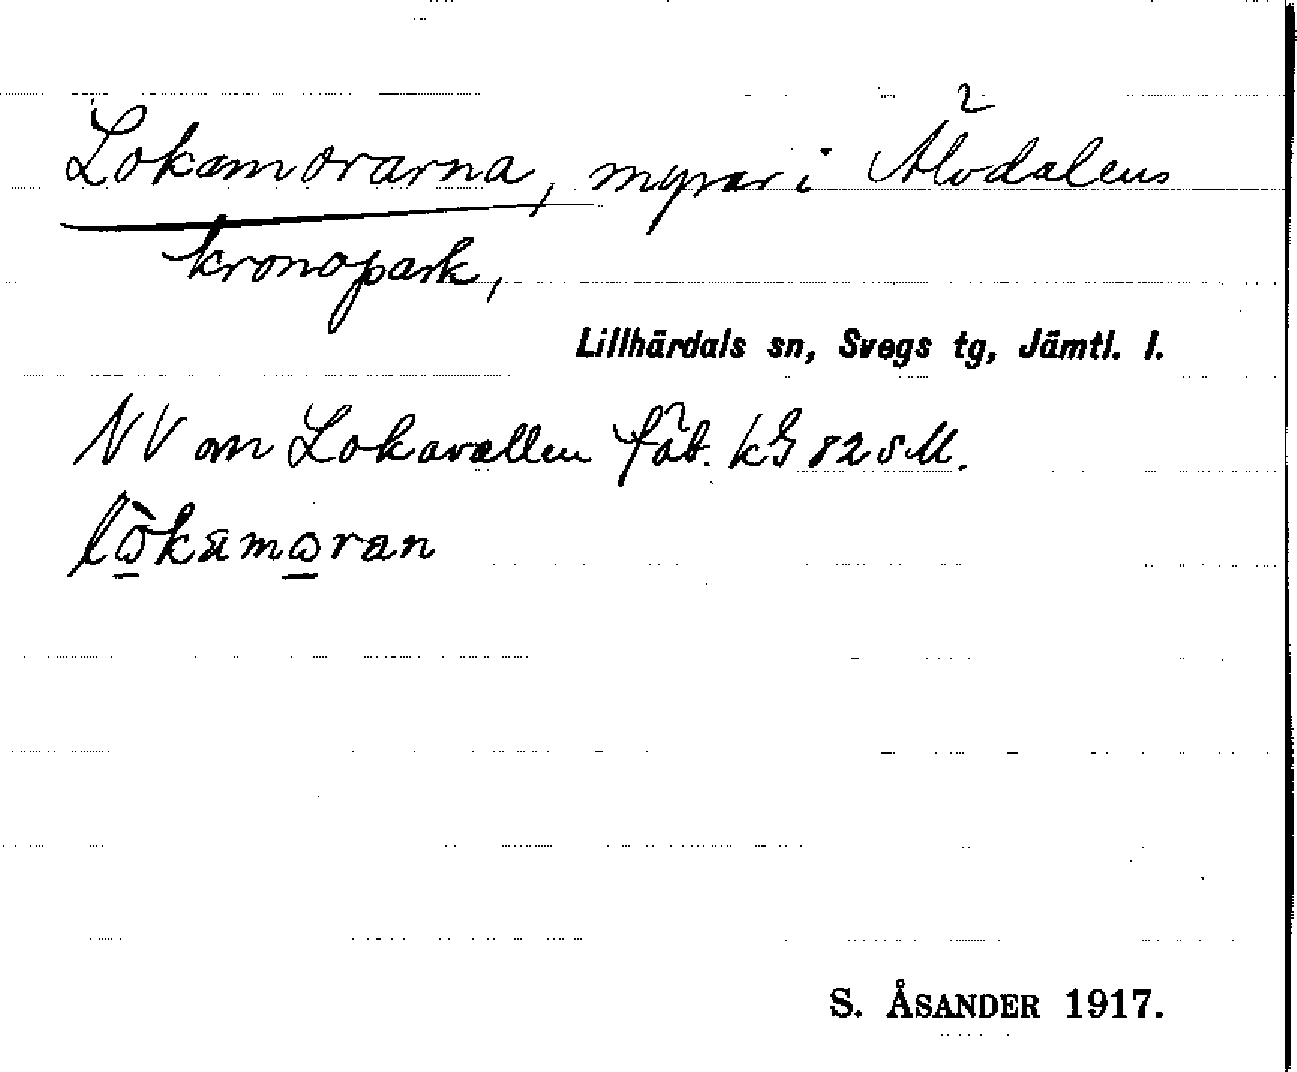 Lokamorarna, myrar i Älvdalens
kronopark,
Lillhärdals sn, Svegs tg, Jämtl. l.
NV om Lokavallen fäb. kG 82 SM.
lo̱̊̀kamo̱ran
S. ÅSANDER 1917.